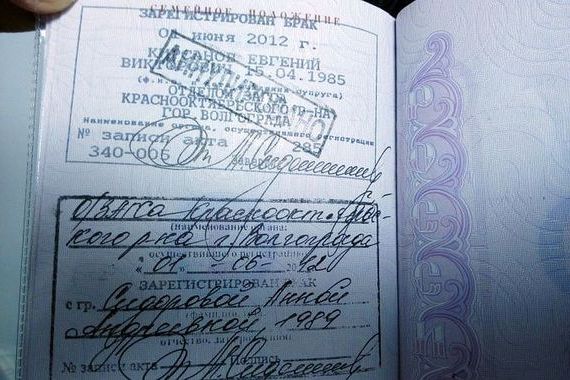 СЕМЕЙНОЕ ПОЛОЖЕНИЕ
ЗАРЕГИСТРИРОВАН БРАК
01 ИЮНЯ 2012 Г.
ЕВГЕНИЙ
15.04.1985
ОТДЕЛОМ ЗАГСА
КРАСНООКТЯБРЬСКОГО Р-НА
ГОР. ВОЛГОГРАДА
Наименование органа, осуществившего регистрации
№ записи акта 285
340-006 Заверено
О/ЗАГСа Краснооктябрьс-
кого р-на г. Волгограда
(наименование органа,
осуществившего регистрацию)
"01" 06 2012
ЗАРЕГИСТРИРОВАН БРАК
с гр. Сидоровой Анной
Андреевной, 1989
№ записи акта Подпись